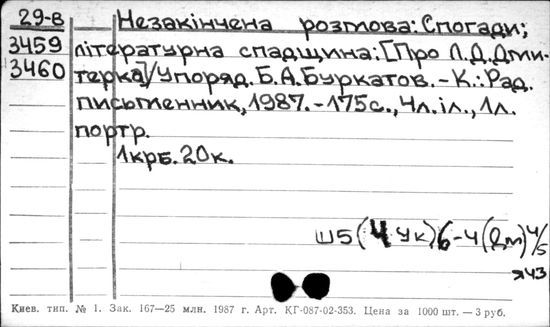 29-в Незакінчена розмова: Спогади;
3459 літературна спадщина: [Про Л.Д.Дми-
3460 терка] / Упоряд. Б.А.Буркатов. - К.: Рад.
письменник, 1987. - 175с., 4л. іл., 1л.
портр.
1крб. 20к.
Ш5(4Ук)6-4(Дм) 4/5
я43
Киев. тип. № 1. Зак. 167—25 млн. 1987 г. Арт. КГ-087-02-353. Цена за 1000 шт. — 3 руб.